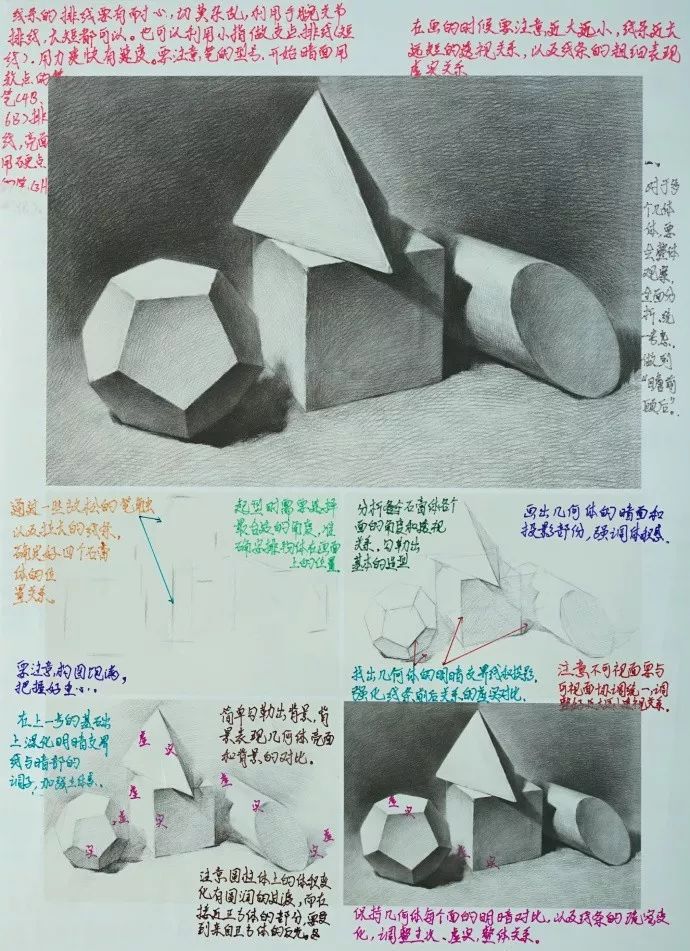 线条的排线要有耐心,切莫杂乱,利用手腕关节
排线,长短都可以。也可以利用小指做支点排线(短
线)。用力爽快有速度。要注意笔的型号,开始暗面用
软点的笔
笔(4B、
6B)排
线,亮面
用硬点
在画的时候要注意近大远小,线条近长
远短的透视关系,以及线条的粗细表现
虚实关系
对于多
个几何
体,要
会整体
观察,
全面分
析,统
一考虑。
做到
"瞻前
顾后"。
通过一些放松的笔触
以及拉长的线条,
确定好四个石膏
体的位
置关系。
起型时需要选择
最合适的角度,准
确安排物体在画面
上的位置
分析每个石膏体各个
面的角度和透视
关系,勾勒出
基本的造型
画出几何体的暗面和
投影部份,强调体积感。
要注意构图饱满,
把握好主
找出几何体的明暗交界线和投影,
强化线条前后关系的虚实对比。
注意不可视面要与
可视面协调统一,调
在上一步的基础
上深化明暗交界
线与暗部的
调子,加强立体感。
简单勾勒出背景,背
景表现几何体亮面
和背景的对比。
虚 实
虚
虚 实
虚 实
实
虚
实
注意圆柱体上的体积变
化有圆润的过渡,而在
接近正方体的部分,要
到来自正方体的反光。
虚
虚 实
保持几何体每个面的明暗对比,以及线条的疏密变
化,调整主次、虚实、整体关系。